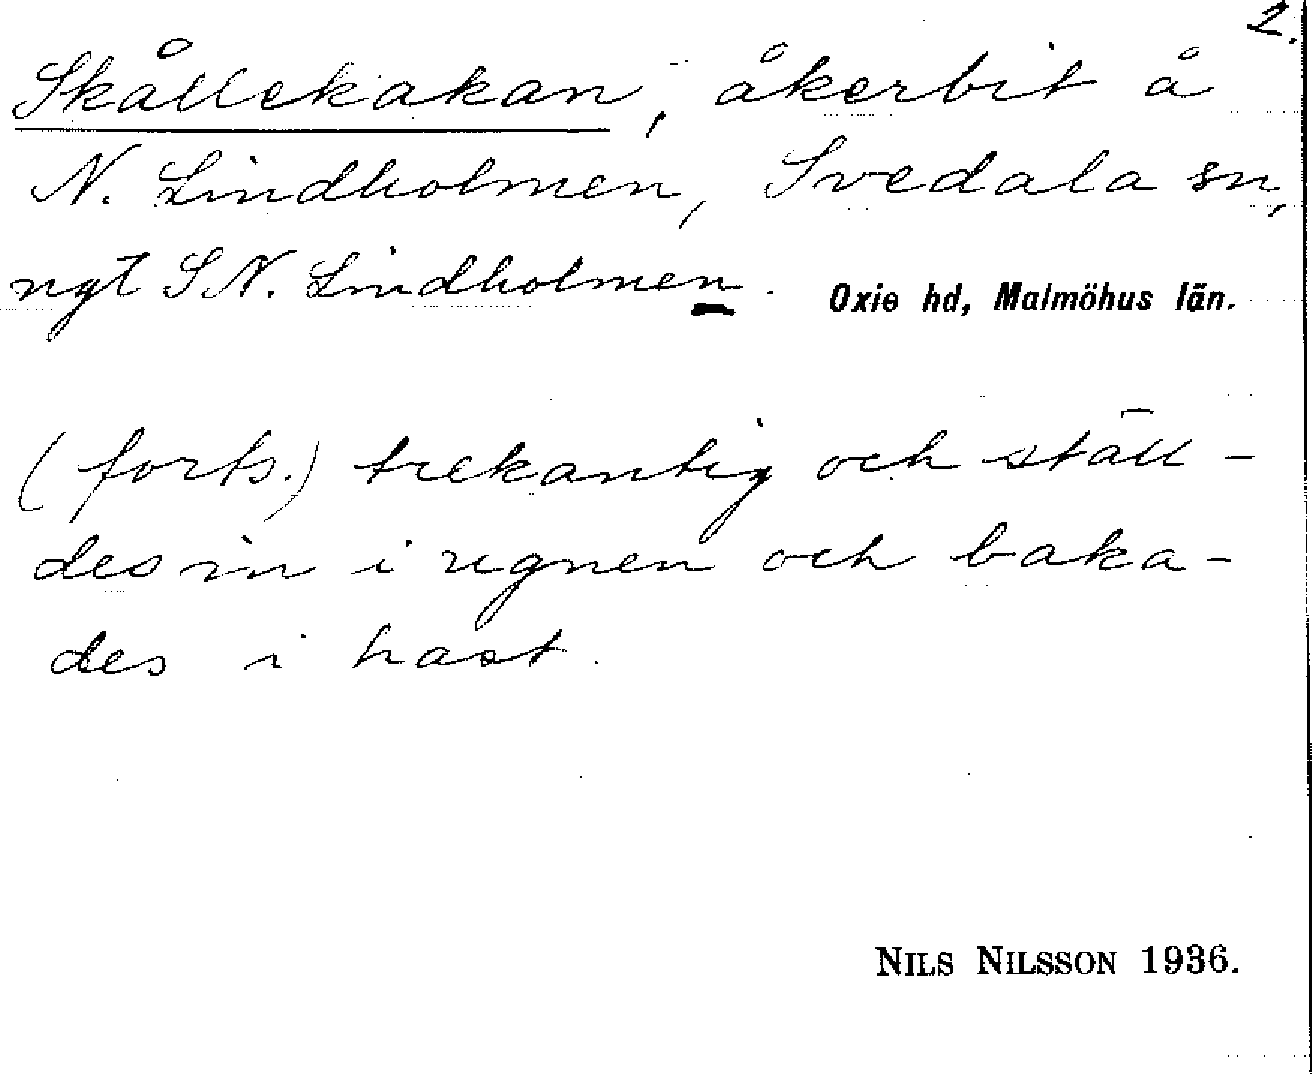 2.
Skållekakan, åkerbit å
N. Lindholmen, Svedala sn,
ngt S N. Lindholmen. Oxie hd, Malmöhus län.
(forts.) trekantig och ställ-
des in i ugnen och baka-
des i hast.
NILS NILSSON 1936.